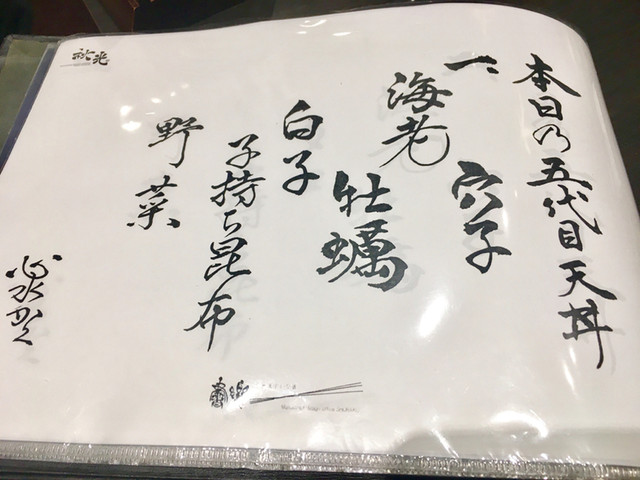 本日の五代目天丼
一、
穴子
海老
牡蠣
白子
子持ち昆布
野菜
秋光